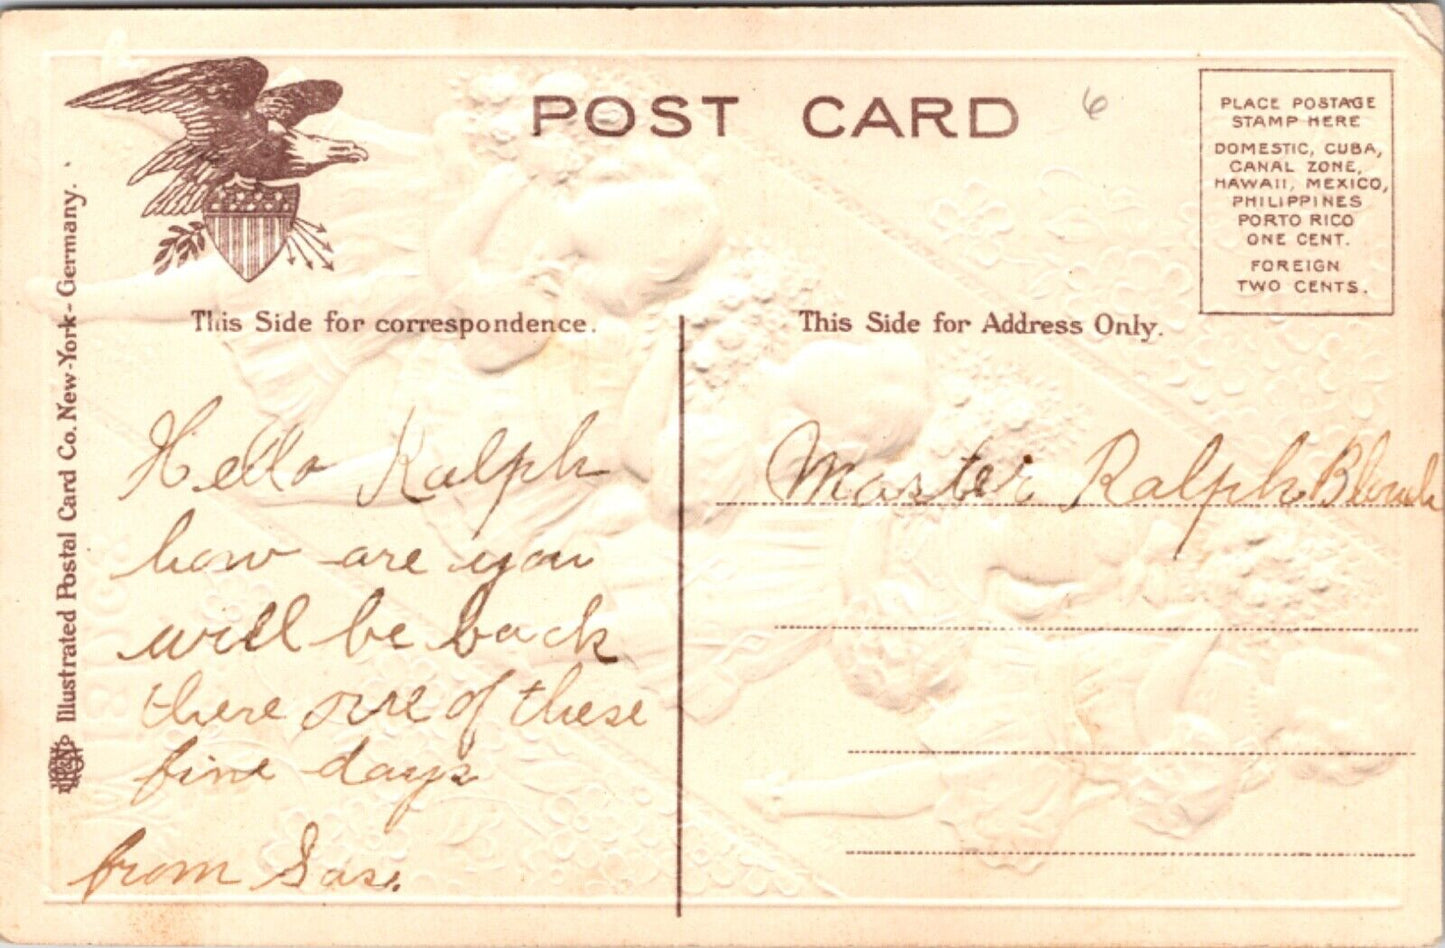 POST CARD
6
PLACE POSTAGE
STAMP HERE
DOMESTIC, CUBA,
CANAL ZONE,
HAWAII, MEXICO,
PHILIPPINES
PORTO RICO
ONE CENT.
FOREIGN
TWO CENTS.
This Side for correspondence.
This Side for Address Only.
Illustrated Postal Card Co. New-York - Germany.
Hello Ralph
how are you
will be back
there one of these
fine days
from
Master Ralph